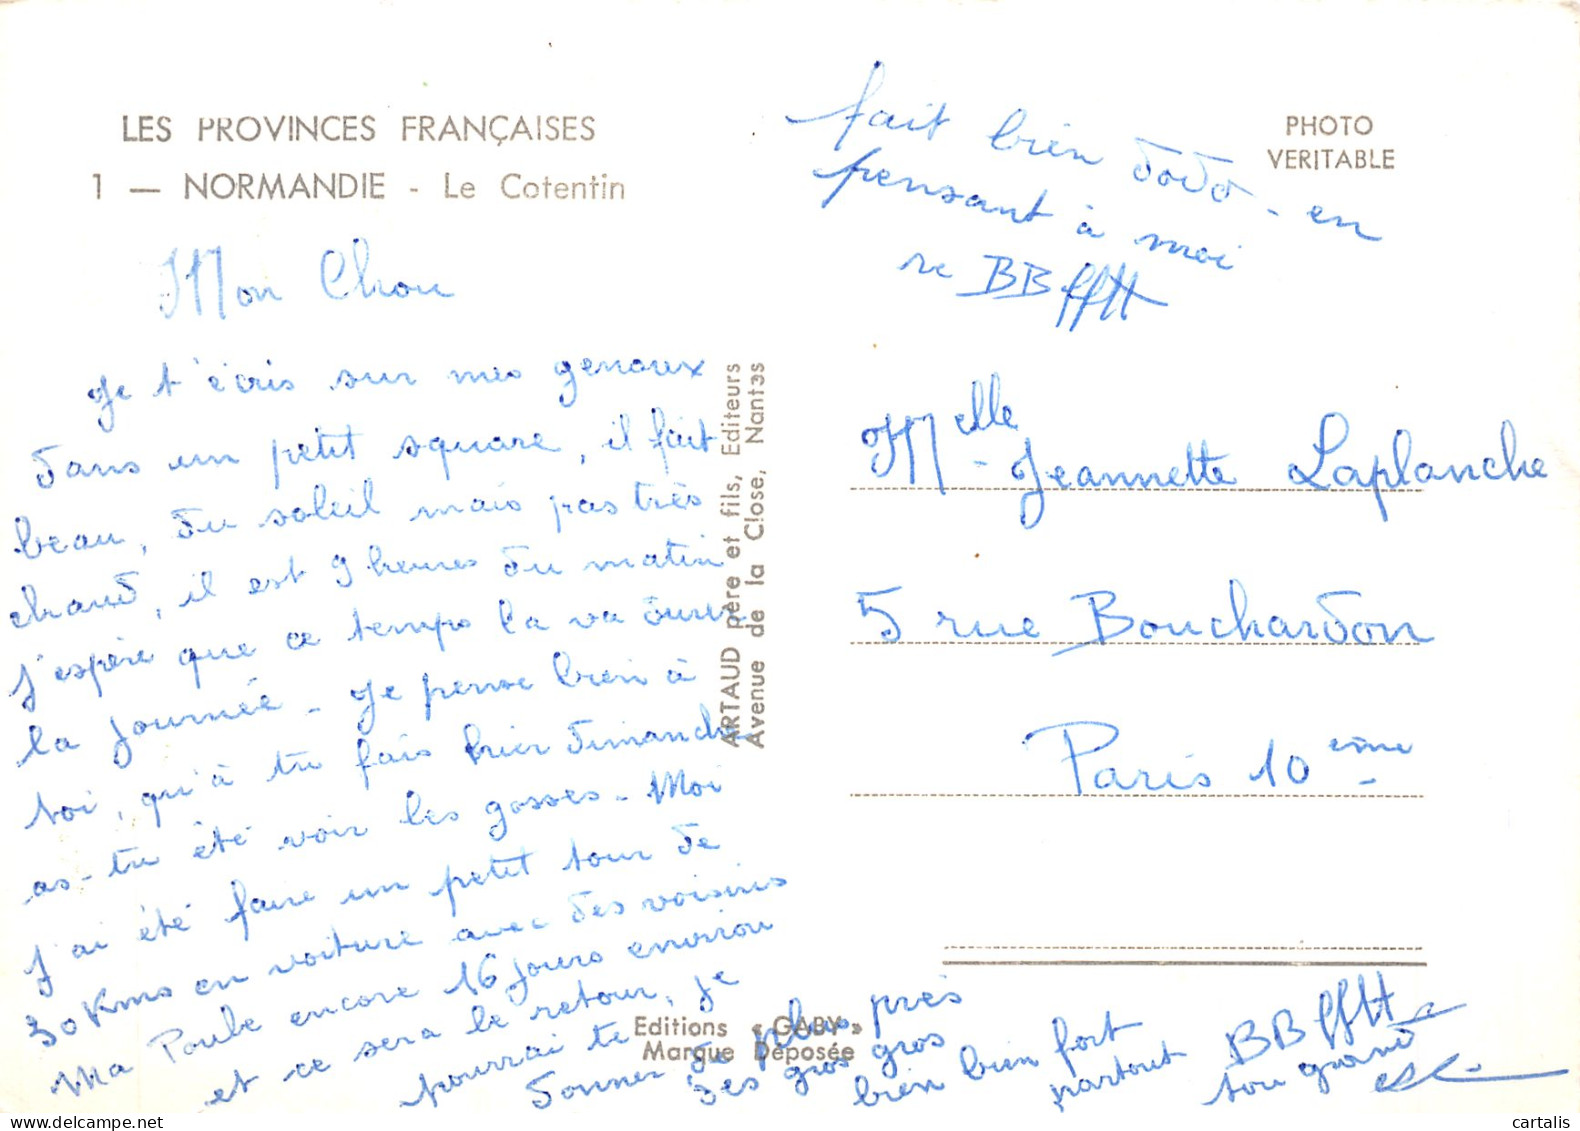 LES PROVINCES FRANÇAISES
1 — NORMANDIE - Le Cotentin
Mon Chou
Je t'écris sur mes genoux
dans un petit square, il fait
beau, du soleil mais pas très
chaud, il est 9 heures du matin
J'espère que ce temps la va durer
la journée - Je pense bien à
toi, qu'à tu fais hier dimanche
as-tu été voir les gosses - Moi
J'ai été faire un petit tour de
30 Kms en voiture avec des voisins
Ma Poule encore 16 jours environ
et ce sera le retour, je
pourrai te
donner de plus près
des gros gros
bien bien fort
partout BBffttt
ton grand
ARTAUD père et fils, Editeurs
Avenue de la Close, Nantes
Editions « GABY »
Marque Déposée
fait bien dodo - en
pensant à moi
BBffttt
PHOTO
VERITABLE
Melle - Jeannette Laplanche
5 rue Bouchardon
Paris 10 ème
cartalis